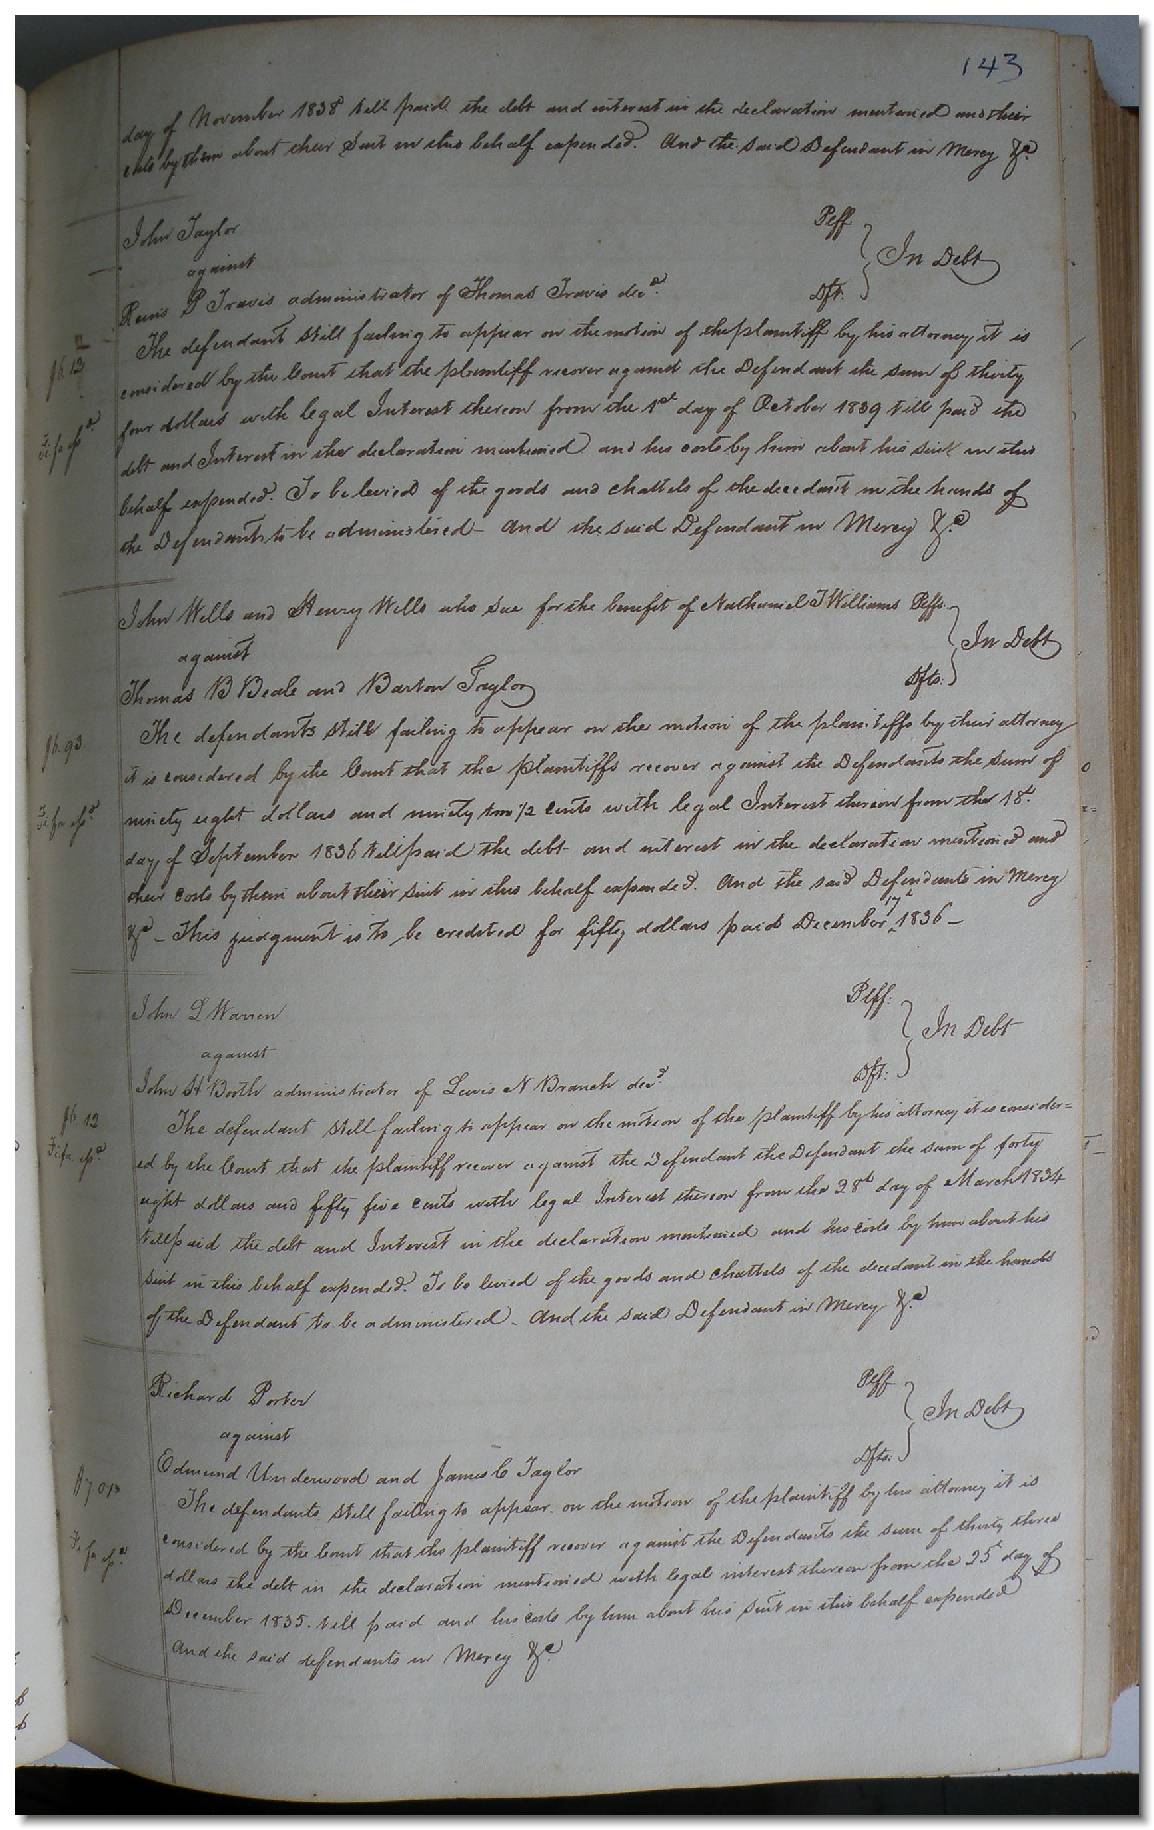 143
day of November 1838 till paid the debt and interest in the declaration mentioned and their
costs by them about their Suit in this behalf expended. And the said Defendant in Mercy &c.
John Taylor Plff
against In Debt
P Travis administrator of Thomas Travis decd. Dft.
The defendant still failing to appear on the motion of the plaintiff by his attorney it is
considered by the Court that the plaintiff recover against the Defendant the sum of thirty
four dollars with legal Interest thereon from the 1st day of October 1839 till paid the
debt and Interest in the declaration mentioned and his costs by him about his suit in this
Fi fa
behalf expended. To be levied of the goods and chattels of the decedant in the hands of
the Defendants to be administered - And the said Defendant in Mercy &c.
John Wells and Henry Wells who sue for the benefit of Nathaniel J Williams Plffs.
against In Debt
Thomas B Beale and Barton Taylor Dfts.
The defendants still failing to appear on the motion of the plaintiffs by their attorney
it is considered by the Court that the plaintiffs recover against the Defendants the sum of
ninety eight dollars and ninety two 1/2 cents with legal Interest thereon from the
Fi fa
day of September 1836 till paid the debt and interest in the declaration mentioned and
their costs by them about their suit in this behalf expended. And the said Defendants in Mercy
&c - This judgment is to be credited for fifty dollars paid December 17th 1836 -
John L Warren Plff.
against In Debt
John H Booth administrator of Lewis N Branch decd. Dft.
The defendant still failing to appear on the motion of the plaintiff by his attorney it is consider=
Fi fa
ed by the Court that the plaintiff recover against the Defendant the Defendant the sum of forty
eight dollars and fifty five cents with legal Interest thereon from the 28th day of March 1834
till paid the debt and Interest in the declaration mentioned and his costs by him about his
suit in this behalf expended. To be levied of the goods and chattels of the decedant in the hands
of the Defendant to be administered - And the said Defendant in Mercy &c.
Richard Porter Plff
against In Debt
Edmund Underwood and James C Taylor Dfts.
The defendants still failing to appear on the motion of the plaintiff by his attorney it is
considered by the Court that the plaintiff recover against the Defendants the sum of thirty three
Fi fa
dollars the debt in the declaration mentioned with legal interest thereon from the 25 day of
December 1835. till paid and his costs by him about his suit in this behalf expended
And the said defendants in Mercy &c.